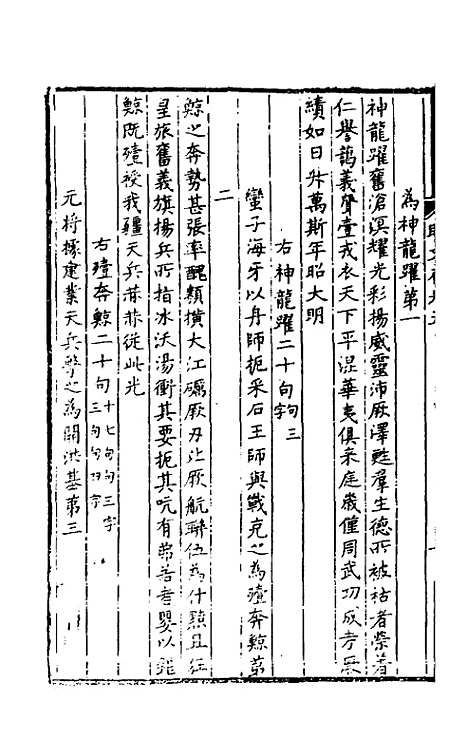 為神龍躍第一
神龍躍奮滄溟耀光彩揚威靈沛厥澤甦羣生德所被枯者榮着
仁譽鼓義聲壹戎衣天下平混華夷俱來庭歲僅周武功成考厥
績如日升萬斯年昭大明
右神龍躍二十句句三字
蠻子海牙以舟師扼采石王師與戰克之為殪奔鯨第
二
鯨之奔勢甚張率醜類橫大江礪厥刃比厥航聯伍為什黠且狂
皇旅奮義旗揚兵所指冰沃湯衝其要扼其吭有弗若者嬰以鋩
鯨既殪授我疆天兵赫赫從此光
右殪奔鯨二十句十七句句三字三句句四字
元將據建業天兵擊之為開洪基第三